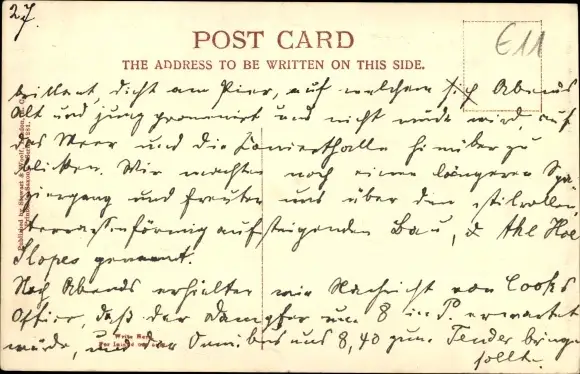 27.
POST CARD
THE ADDRESS TO BE WRITTEN ON THIS SIDE.
E11
brillant dicht am Pier, auf welchem sich Abends
Alt und jung promenirt und nicht müde wird, auf
das Meer und die hinüber zu
blicken. Wir machten noch einen längeren Spa
ziergang und freuten uns über den stilvollen
terrassenförmig aufsteigenden Bau, d. the Hoe
Slopes genannt.
Noch Abends erhielten wir Nachricht von Cooks
Office, daß der Dampfer um 8 in P. erwartet
würde, und der Omnibus uns 8,40 zum Tender bringen
sollte.